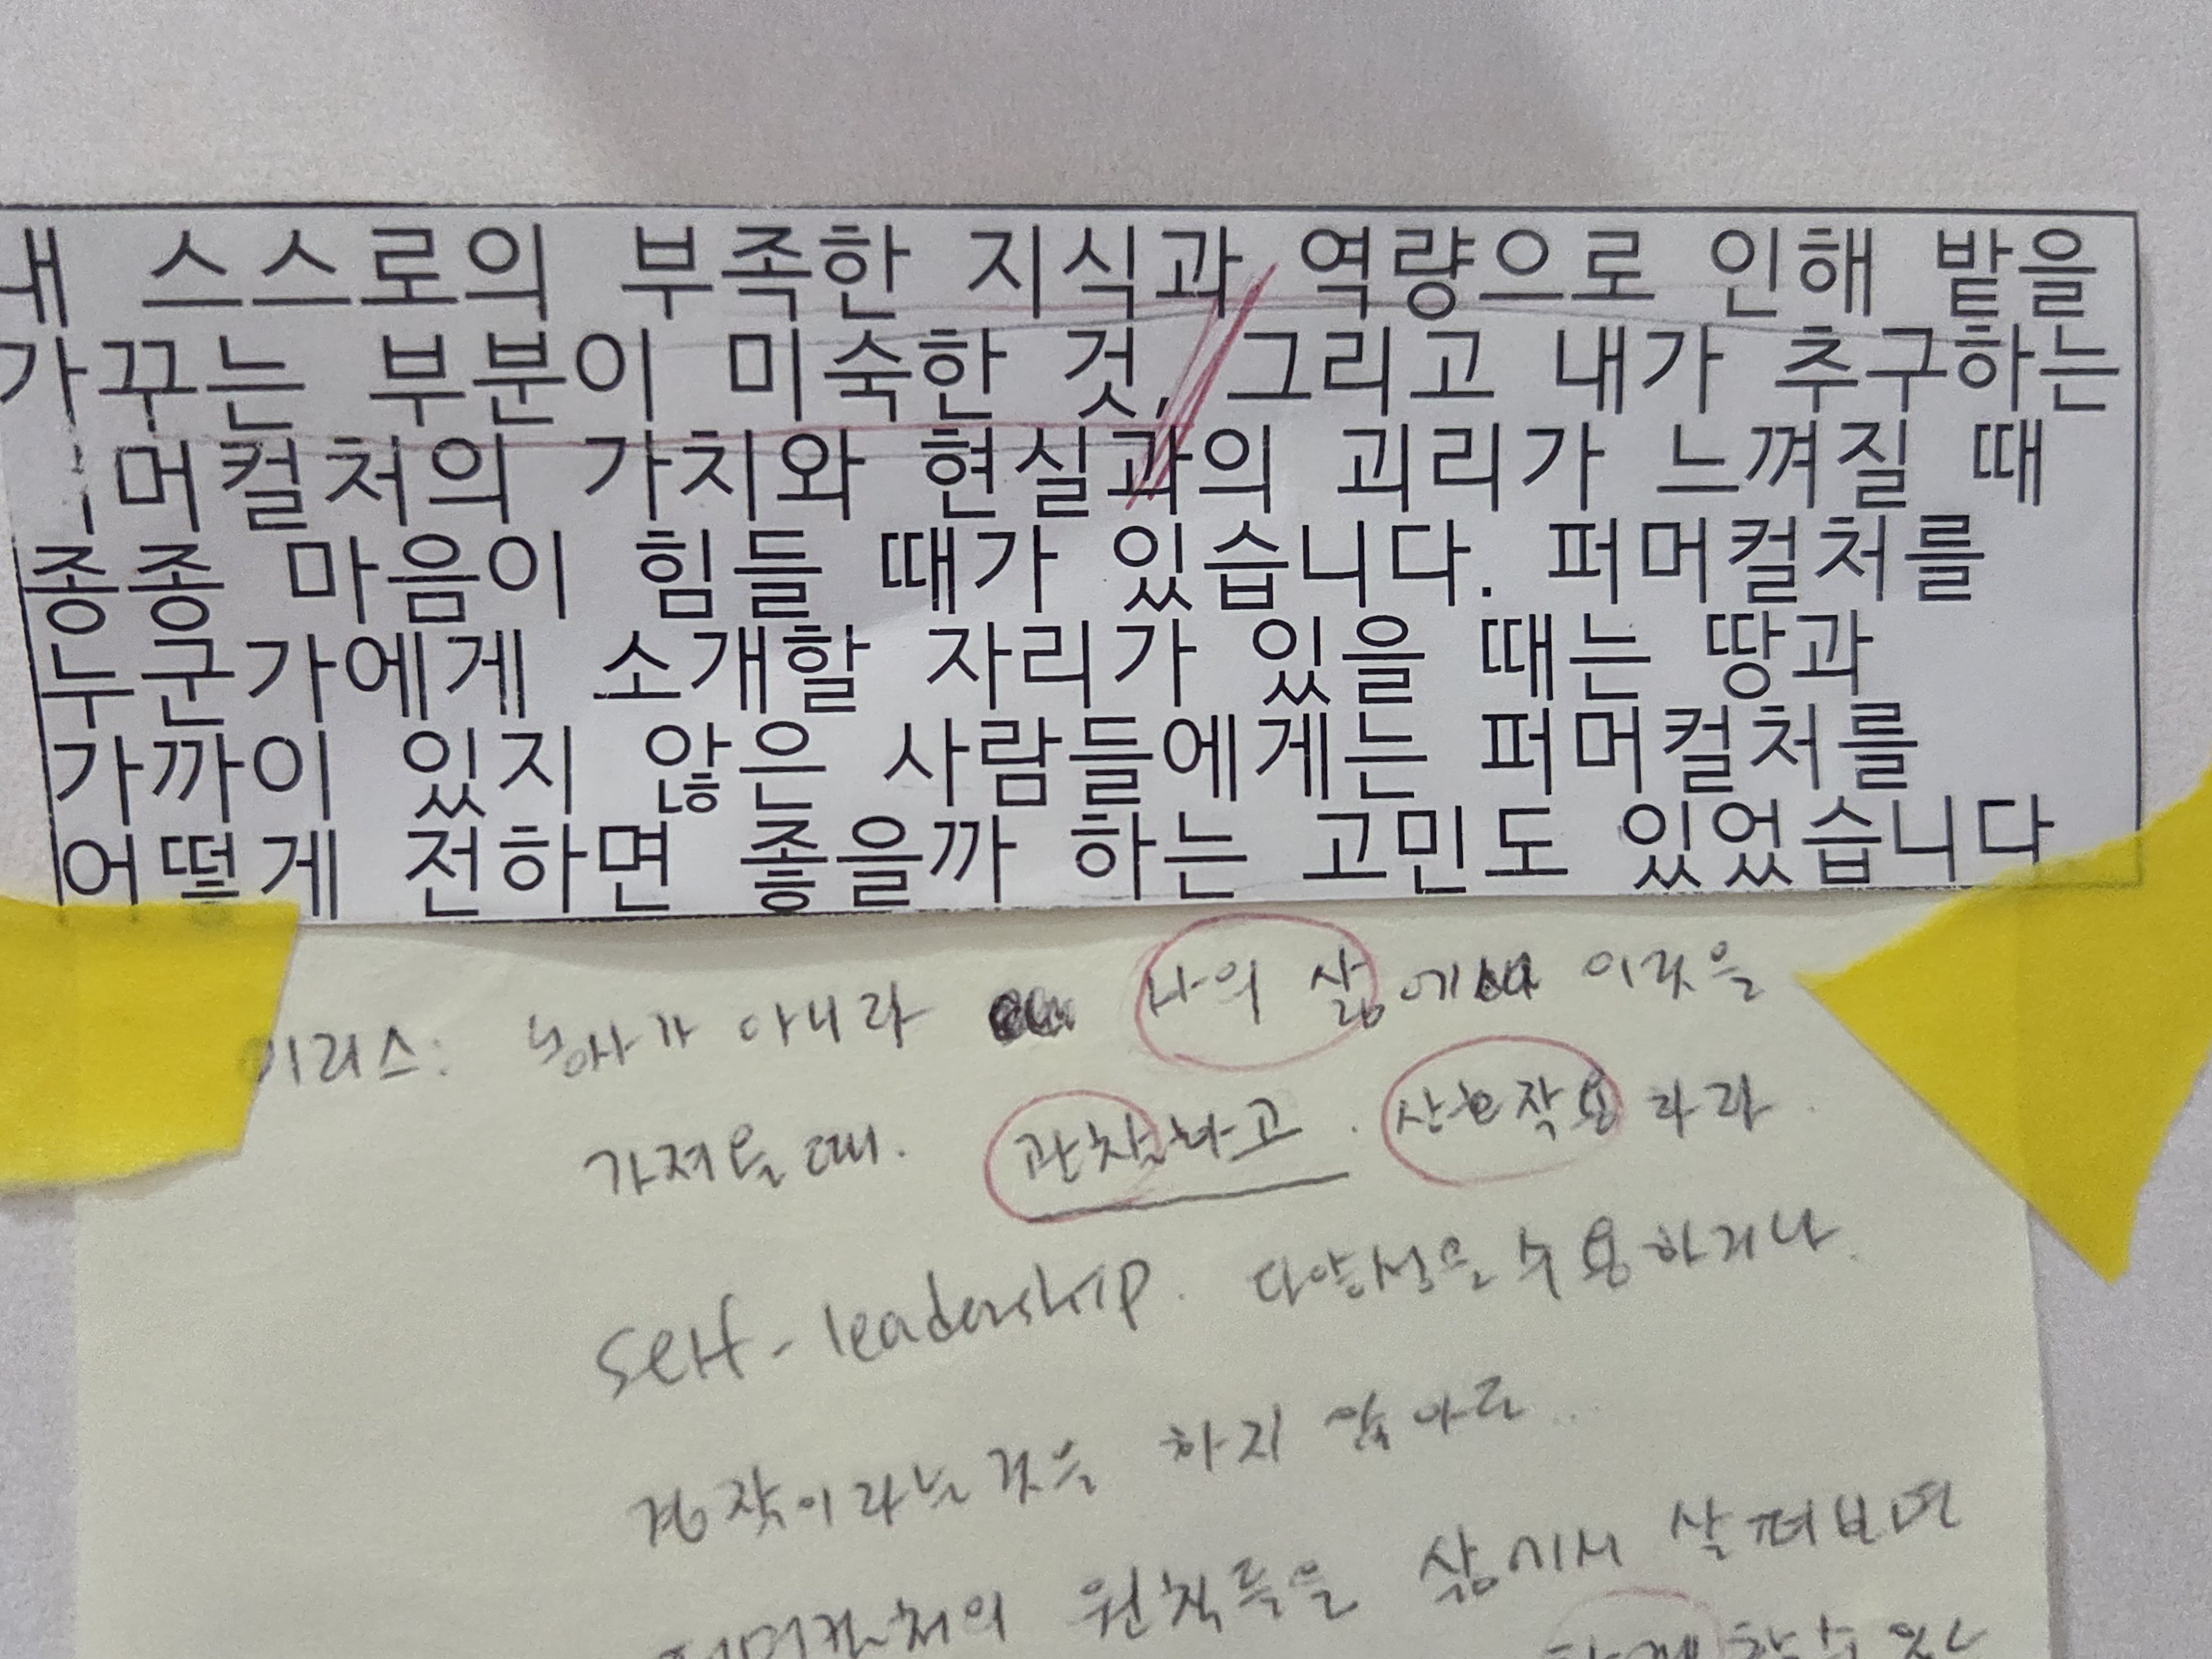 내 스스로의 부족한 지식과 역량으로 인해 밭을
가꾸는 부분이 미숙한 것, 그리고 내가 추구하는
머컬처의 가치와 현실과의 괴리가 느껴질 때
종종 마음이 힘들 때가 있습니다. 퍼머컬처를
누군가에게 소개할 자리가 있을 때는 땅과
가까이 있지 않은 사람들에게는 퍼머컬처를
어떻게 전하면 좋을까 하는 고민도 있었습니다
이리스: 농사가 아니라 나의 삶에서 이것을
가져올 때. 관찰하고. 상호작용하라.
self-leadership. 다양성을 수용하거나.
경작이라는 것을 하지 않아도..
퍼머컬처의 원칙들을 삶에서 살펴보면
함께 할 수 있